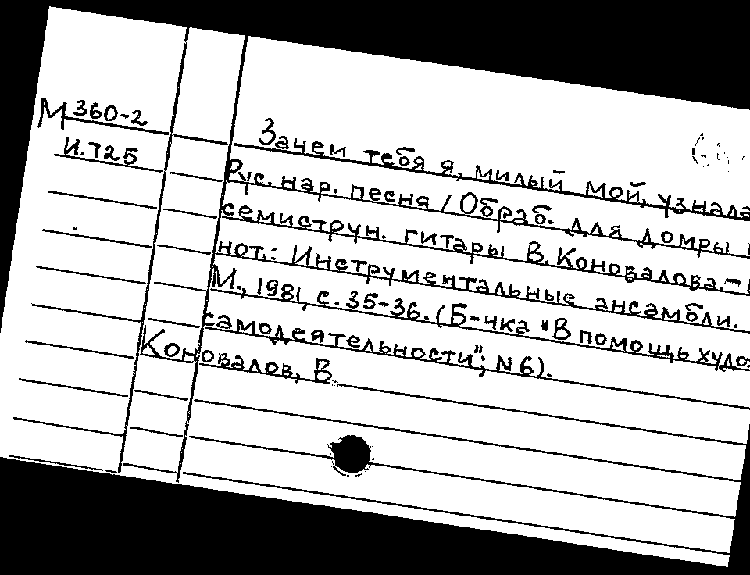 М 360-2
И.725
Зачем тебя я, милый мой, узнала
Рус. нар. песня / Обраб. для домры
семиструн. гитары В. Коновалова. –
нот.: Инструментальные ансамбли.
М., 1981, с. 35-36. (Б-чка "В помощь худо
самодеятельности"; N 6).
Коновалов, В.